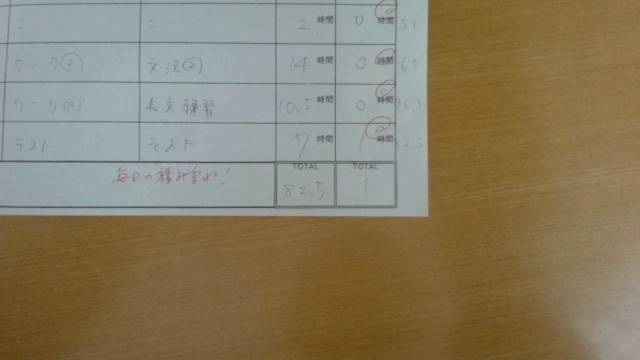 〃 〃 2 時間 0 時間 51
ワーク② 文法② 14 時間 0 時間 65
ワーク③ 長文練習 10.5 時間 0 時間 75.3
テスト テスト 7 時間 1 時間
TOTAL TOTAL
毎日の積み重ね! 82.5 1